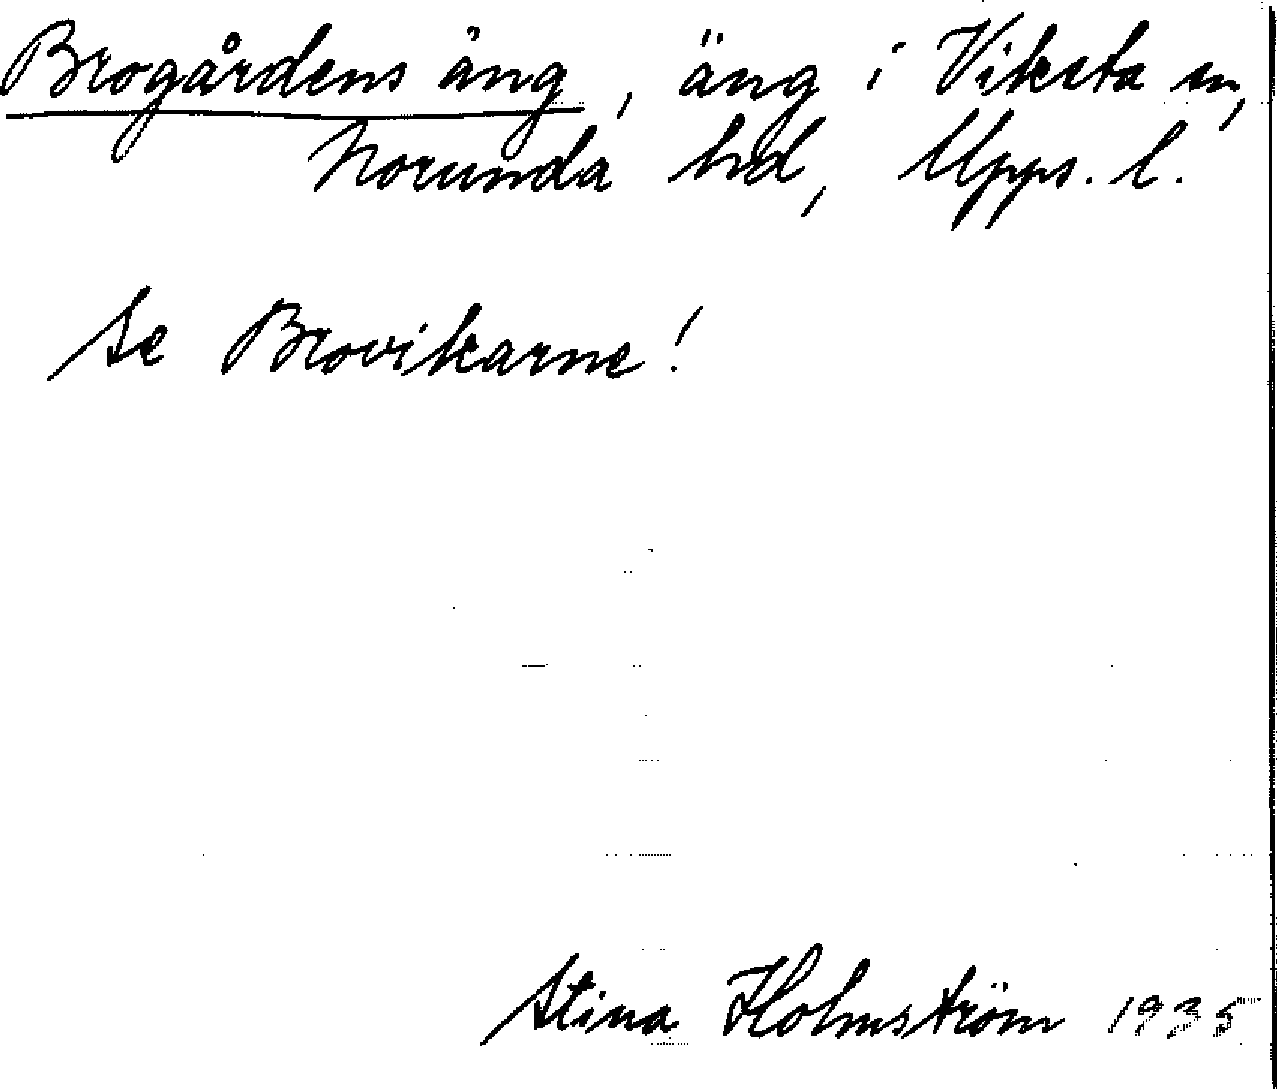 Brogårdens äng, äng i Viksta sn,
Norunda hd, Upps. l.
Se Brovikarne!
Stina Holmström 1935